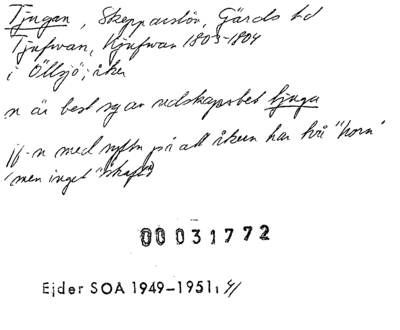 Tjugan, Skepparslöv, Gärds hd
Tjufwan, Kjufwan 1803-1804
i Öllsjö; åker
n är best sg av redskapsbet tjuga
jf-n med syftn på att åkern har två "horn"
(men inget "skaft")
00031772
Ejder SOA 1949-1951: 41